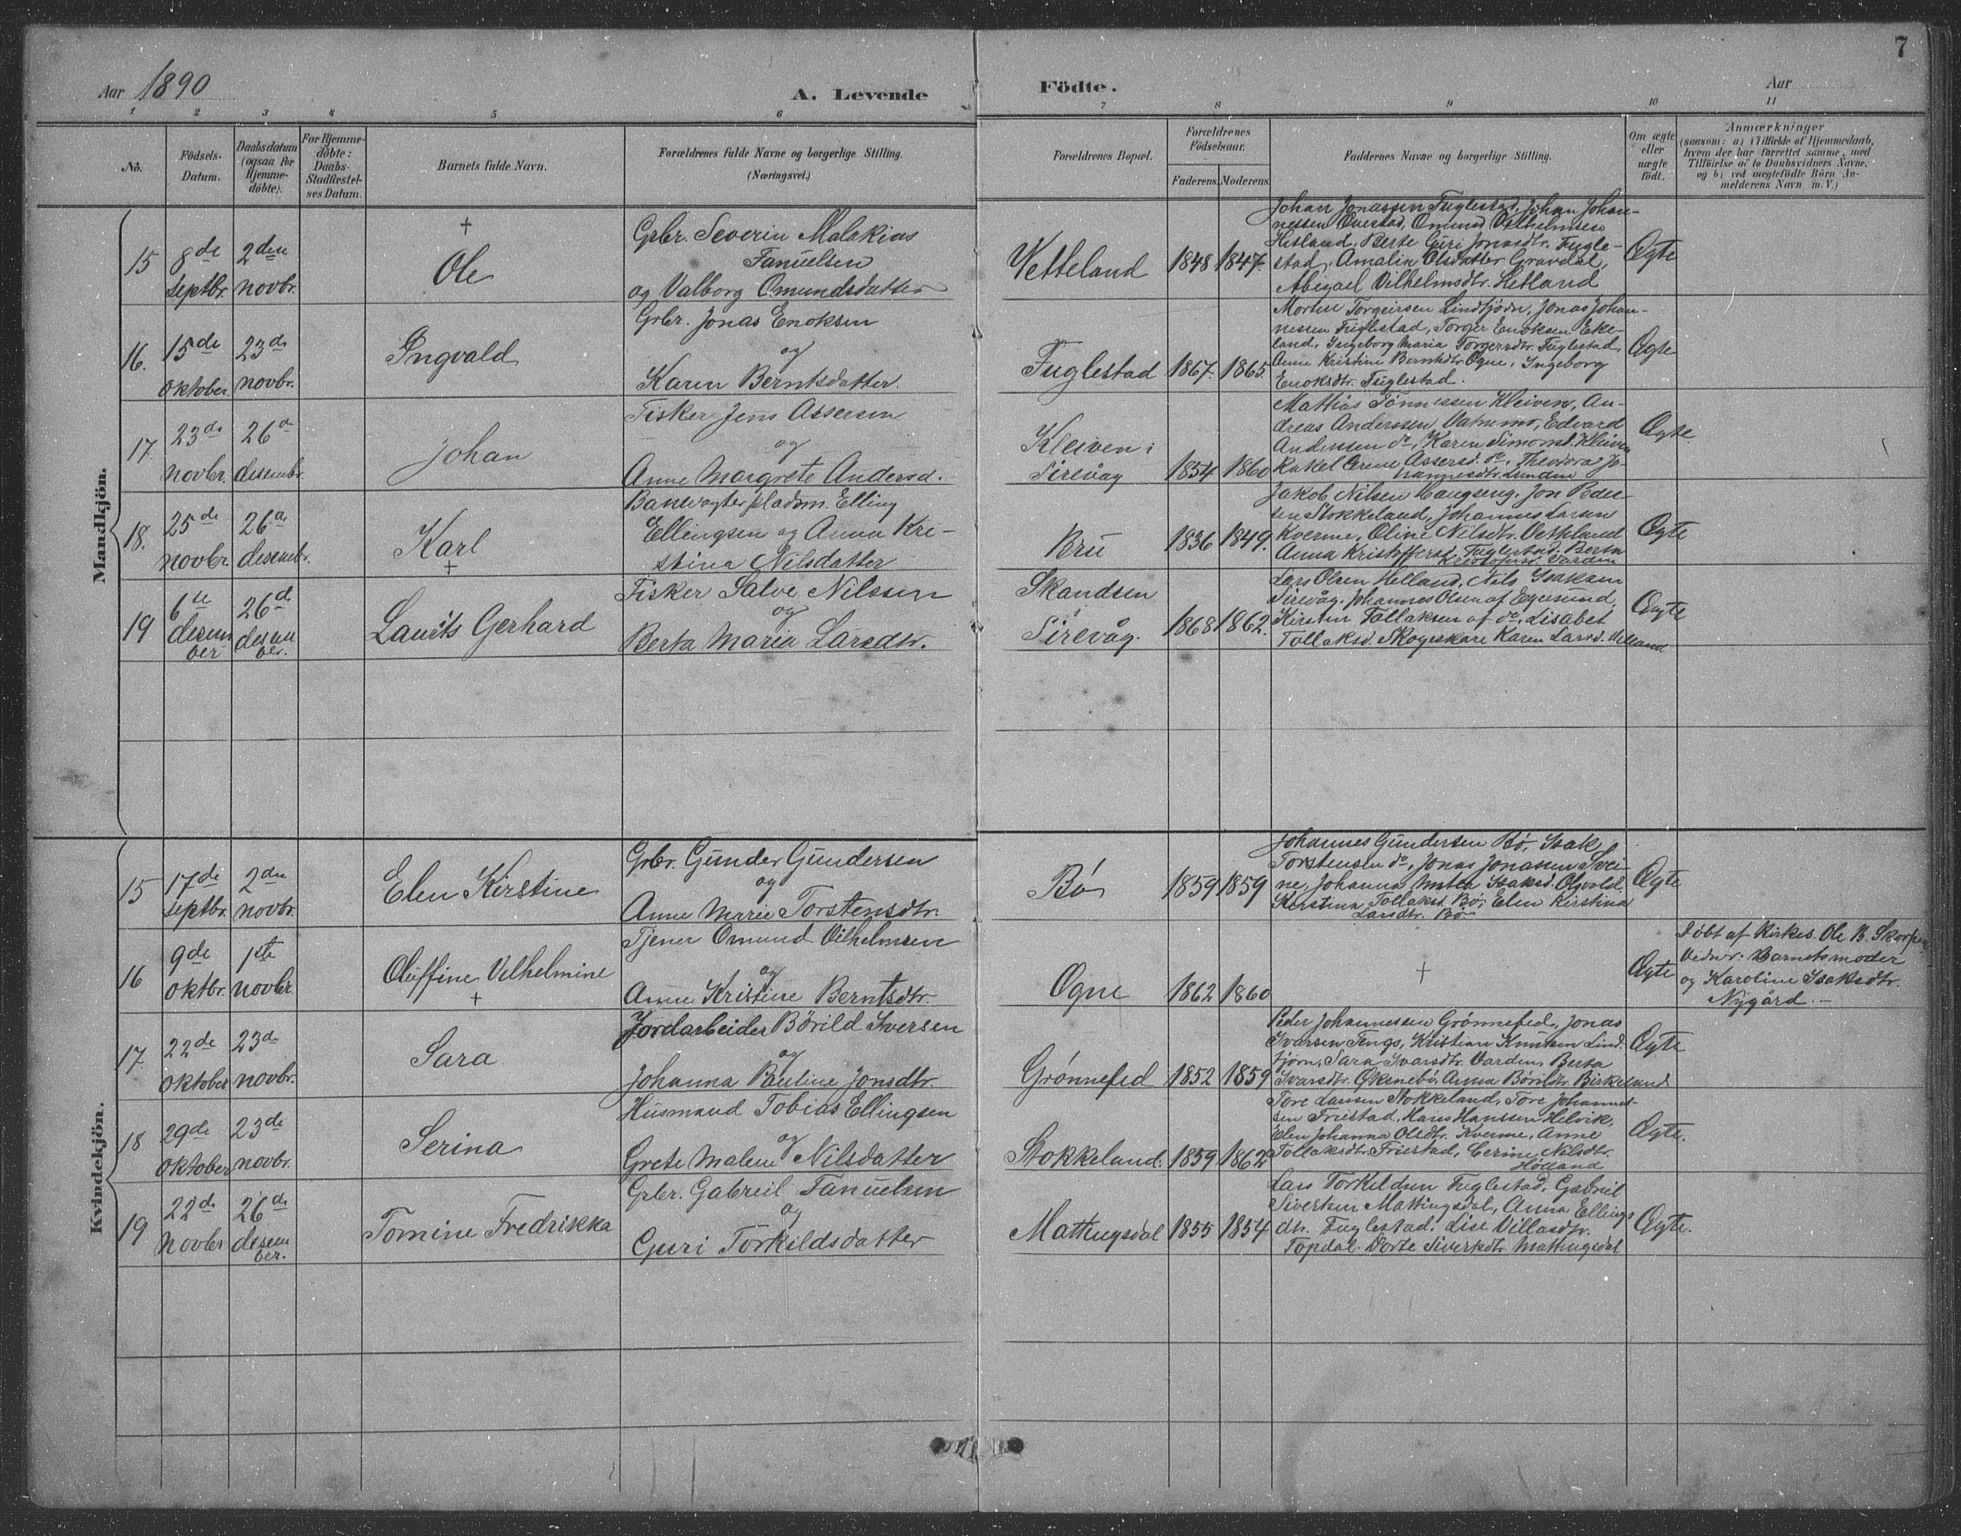 7
Aar 1890
A. Levende
Födte.
Aar
1 2 3 4 5 6 7 8 9 10 11
No.
Födsels-
Datum.
Daabsdatum
(ogsaa for
Hjemme-
döbte).
For Hjemme-
döbte:
Daabs-
Stadfæstel-
ses Datum.
Barnets fulde Navn.
Forældrenes fulde Navne og borgerlige Stilling.
(Næringsvei.)
Forældrenes Bopæl.
Forældrenes
Födselsaar.
Faderens. Moderens.
Faddernes Navne og borgerlige Stilling.
Om ægte
eller
uægte
födt.
Anmærkninger
(saasom: a) i Tilfælde af Hjemmedaab,
hvem der har forrettet samme, med
Tilföielse af to Daabsvidners Navne,
og b) ved uægtefödte Börn An-
melderens Navn m. V.)
Mandkjön.
15
8de
septbr.
2den
novbr.
†
Ole
Grbr. Severin Malakias
Fanuelsen
og Valborg Omundsdatter
Vetteland
1848 1847
Johan Jonassen Fuglestad, Johan Johan-
nessen Querstad, Omund Vilhelmsen
Hetland, Berte Guri Jonasdtr. Fugle-
stad, Amalia Olsdatter Gravdal,
Abigael Vilhelmsdtr. Hetland
Ægte
16.
15de
oktober.
23de
novbr.
Ingvald
Grbr. Jonas Enoksen
og
Karen Berntsdatter.
Fuglestad
1867. 1865.
Morten Torgeirsen Lindtjødn, Jonas Johan-
nessen Fuglestad, Torger Enoksen Eke-
land, Ingeborg Maria Torgersdtr. Fuglestad,
Anne Kristine Berntsdtr. Ogne, Ingeborg
Enoksdtr. Fuglestad.
Ægte
17.
23de
novbr.
26de
desembr.
Johan
Fisker Jens Assersen
og
Anne Margrete Andersd.
Kleiven i
Sirevåg
1854 1860
Mathias Tønnessen Kleiven, An-
dreas Anderssen Vatnemo, Edvard
Anderssen do, Karen Simonsd. Kleiven
Rakel Serene Assersd. do, Theodora Jo-
hannesdtr. Lunden
Ægte
18.
25de
novbr.
26de
desembr.
Karl
†
Banevogter pladsm. Elling
Ellingsen og Anna Kre-
stina Nilsdatter
Bru
1836 1849.
Jakob Nilsen Haugseng, Jon Peder-
sen Stokkeland, Johannes Larsen
Kverme, Oline Nilsdtr. Vetteland
Anna Kristoffersd. Fuglestad, Berta
Kristofersd. Varden
Ægte
19
6te
desem
ber
26de
desem
ber.
Laurits Gerhard
Fisker Salve Nilssen
og
Berta Maria Larsdtr.
Skandsen
Sirevåg.
1868 1862.
Lars Olsen Helland, Nils Isaksen
Sirevåg, Johannes Olsen af Egersund,
Kirstin Tollaksen af do, Lisabet
Tollaksd. Skogeskare Karen Larsd. Helland
Ægte
Kvindekjön.
15
17de
septbr.
2den
novbr.
Elen Kirstine
Grbr. Gunder Gundersen
og
Anne Marie Torstensdtr.
Bø
1859 1859
Johannes Gundersen Bø, Isak
Torstensen do, Jonas Jonassen Svei-
ne, Johanna Mathea Isaksd. Ogvold,
Kirstina Tollaksd. Bø, Elen Kirstina
Larsdtr. Bø
Ægte
16
9de
oktbr.
1ste
novbr.
Oluffine Vilhelmine
†
Tjener Omund Vilhelmsen
og
Anne Kristine Berntsdtr.
Ogne
1862 1860
†
Ægte
Døbt af Kirkes. Ole B. Skorpe
Vidner: Barnets moder
og Karoline Isaksdtr.
Nygård.
17.
22de
oktober
23de
novbr.
Sara
Jordarbeider Børild Iversen
og
Johanna Pauline Jonsdtr.
Grønnefed
1852 1859
Peder Johannessen Grønnefed, Jonas
Ivarsen Tengs, Kristian Knutsen Lind-
tjørn, Sara Ivarsdtr. Varden, Berta
Ivarsdtr. Oksnebø, Anna Børildtr. Birkeland
Ægte
18
29de
oktober
23de
novbr.
Serina
Husmand Tobias Ellingsen
og
Grete Malene Nilsdatter
Stokkeland.
1859 1862
Tore Larsen Stokkeland, Tore Johannes-
sen Friestad, Hans Hansen Helvik,
Elen Johanna Olsdtr. Kverme, Anne
Tollaksdtr. Friestad, Cerine Nilsdtr.
Holland
Ægte.
19
22de
novbr
26de
desem
ber.
Tomine Fredrikka
Grbr. Gabriel Fanuelsen
og
Guri Torkildsdatter
Mattingsdal
1855 1854
Lars Torkildsen Fuglestad, Gabriel
Sivertsen Mattingsdal, Anna Ellings
dtr. Fuglestad, Lise Villasdtr.
Topdal. Dorte Siverksdtr. Mattingsdal
Ægte.